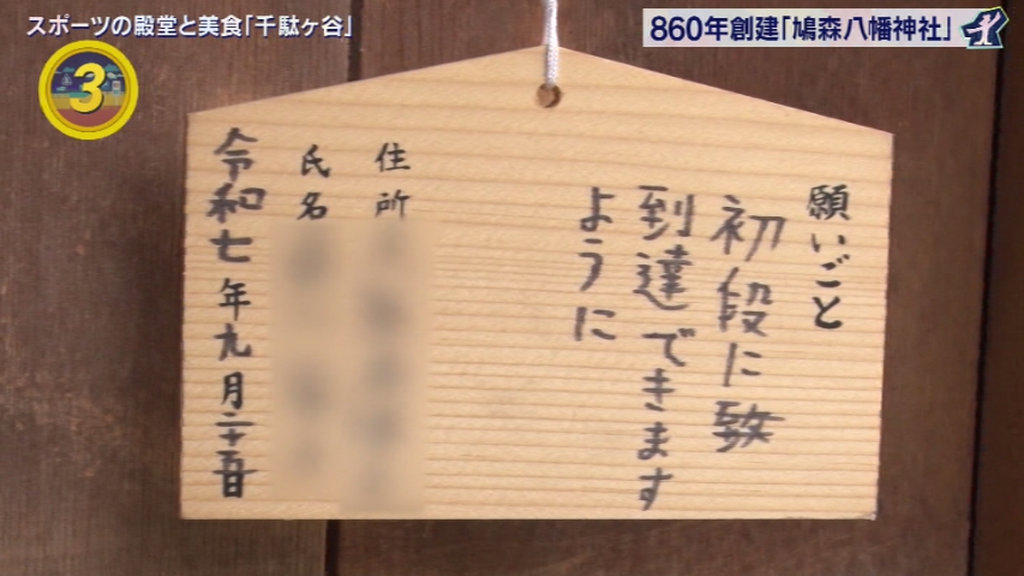 スポーツの殿堂と美食「千駄ヶ谷」
860年創建「鳩森八幡神社」
3
願いごと
初段に致
到達できます
ように
住所
氏名
令和七年九月二十五日